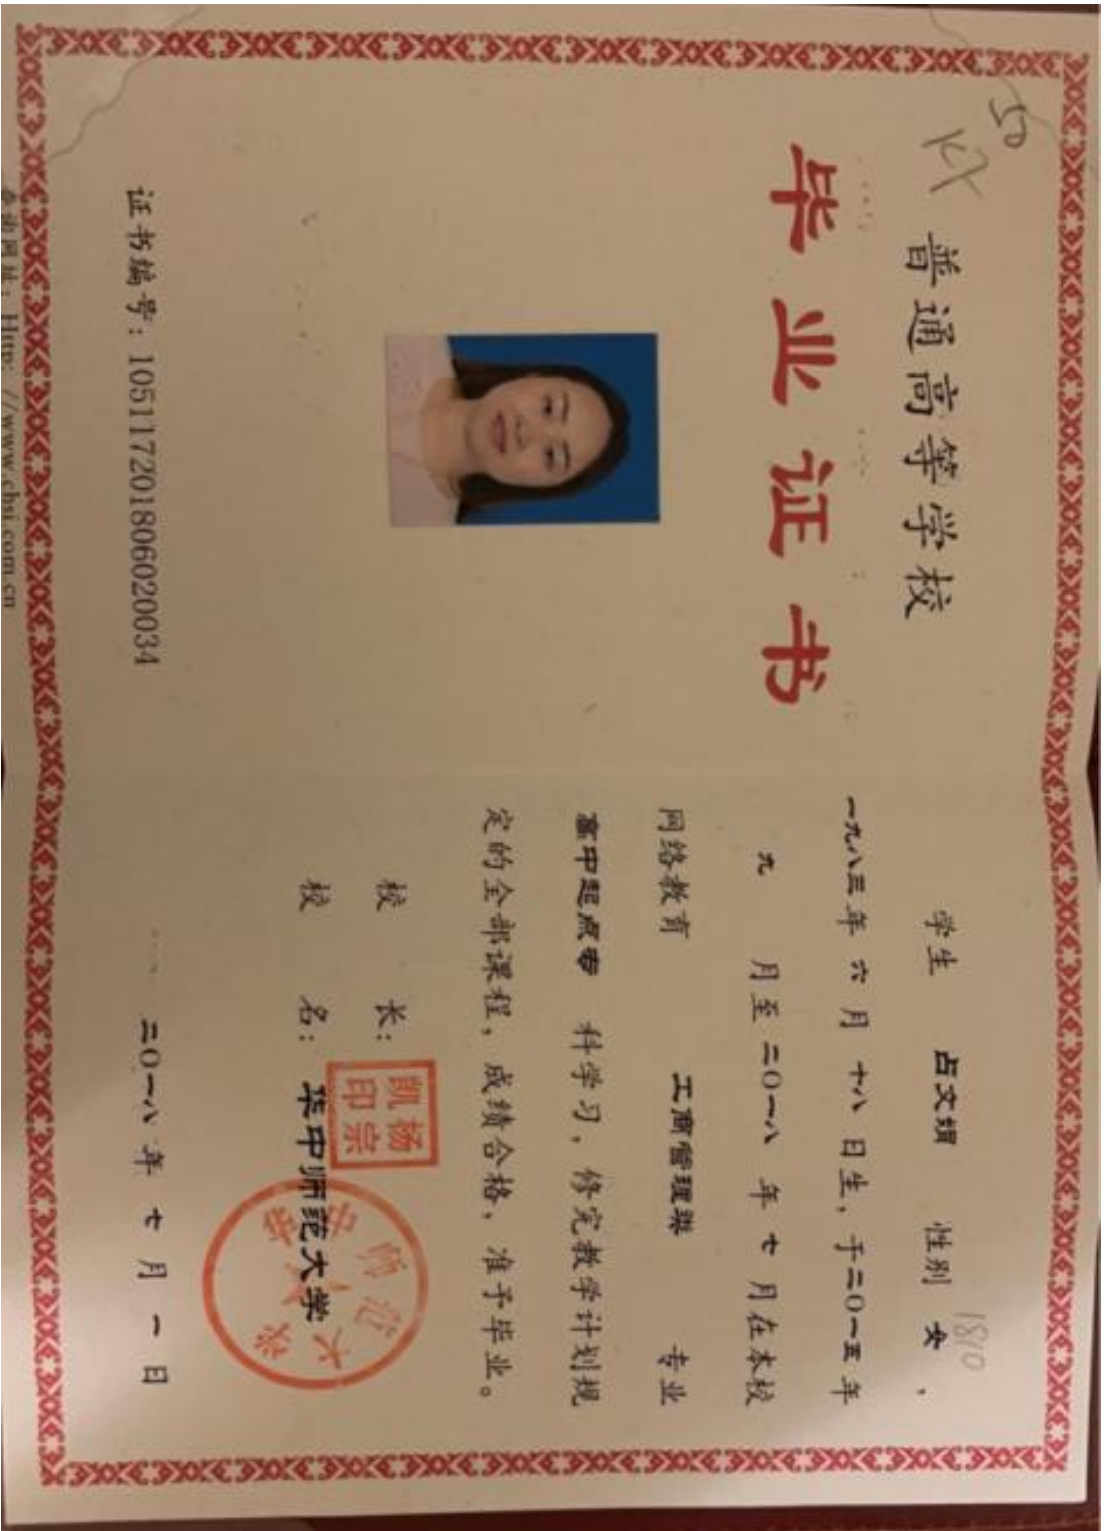 50
KX
普通高等学校
毕业证书
证书编号：105117201806020034
查询网址：Http://www.chsi.com.cn
学生 占文娟 性别 女，
1810
一九八三年 六月 十八日生，于二〇一五年
九 月至二〇一八 年 七月在本校
网络教育 工商管理类 专业
高中起点专 科学习，修完教学计划规
定的全部课程，成绩合格，准予毕业。
校 长：
杨宗凯印
校 名：华中师范大学
华中师范大学
二〇一八年 七月 一日